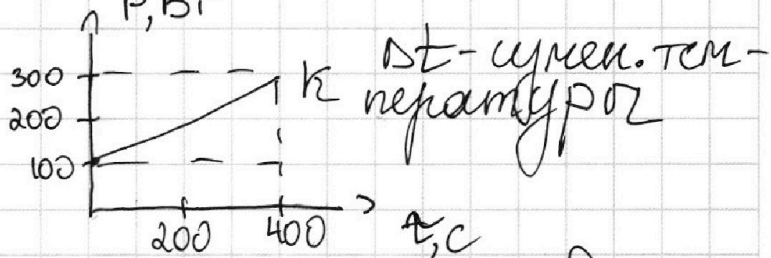 P, Вт
300
200
100
200
400
t, с
K
Δt - измен. тем-
пературы